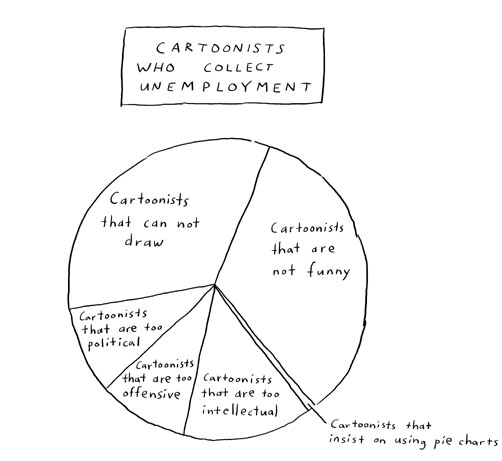 CARTOONISTS
WHO COLLECT
UNEMPLOYMENT
Cartoonists
that can not
draw
Cartoonists
that are
not funny
Cartoonists
that are too
political
Cartoonists
that are too
offensive
Cartoonists
that are too
intellectual
Cartoonists that
insist on using pie charts